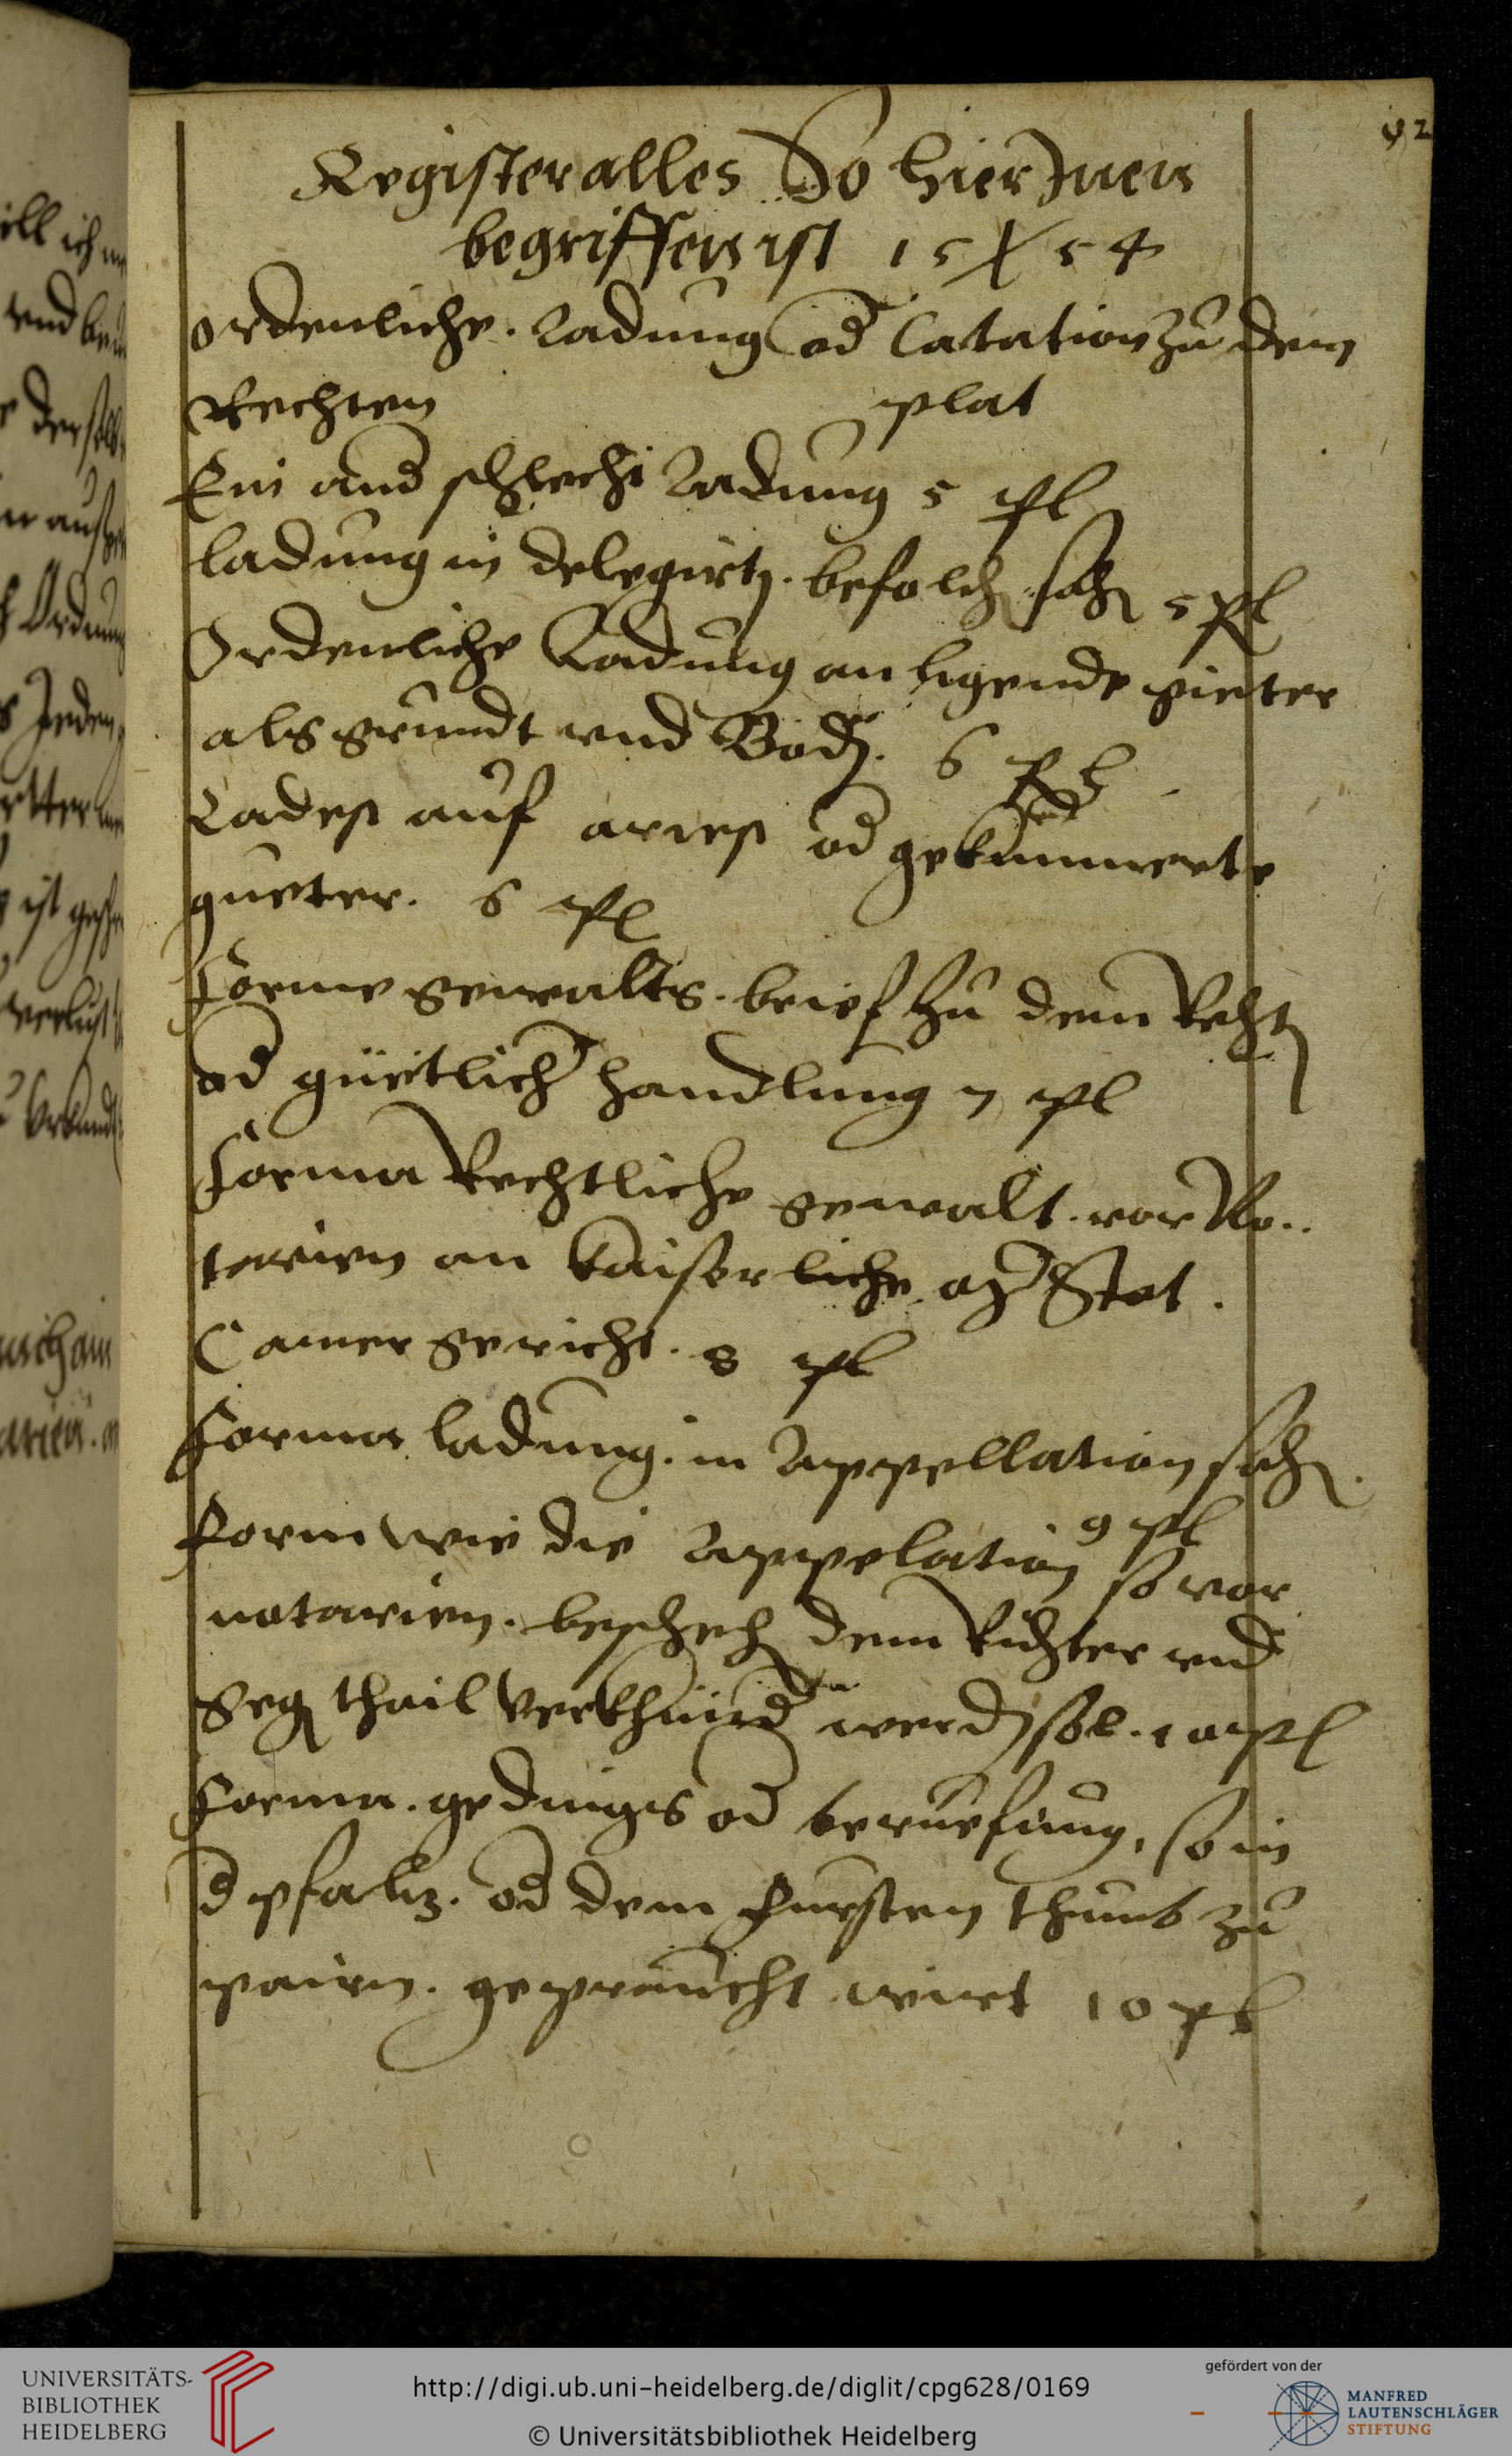 92
Register alles So hier Jnen
begriffen ist 15 X 54
Ordenliche. Ladung od Catation zu dem
Rechten plat
Ein and schlecht Ladung 5 pl
ladung in delegirtn. befolch sach 5 pl
Ordenliche Ladung an ligende gieter
als grundt vnd Bodn. 6 pl
Ladest auf arrest od gekummerte
gueter. 6 pl
Forme gewalts. brief zu dem Recht
od güetlich handlung 7 pl
Forma Rechtliche gewalt. vor No..
tarien an kaiserliche Stat.
Camer gericht. 8 pl
Forma ladung. in Appellation sach.
9 pl
Form wie die Appelation so vor
notarien. beschech dem Richter vnd
geg thail verkhünd werdn sol. 10 pl
Forma. gedinges od beruefung, so in
d pfaltz. od dem fursten thumb zu
pairn. gepraucht wirt 10 pl
UNIVERSITÄTS-
BIBLIOTHEK
HEIDELBERG
http://digi.ub.uni-heidelberg.de/diglit/cpg628/0169
© Universitätsbibliothek Heidelberg
gefördert von der
MANFRED
LAUTENSCHLÄGER
STIFTUNG